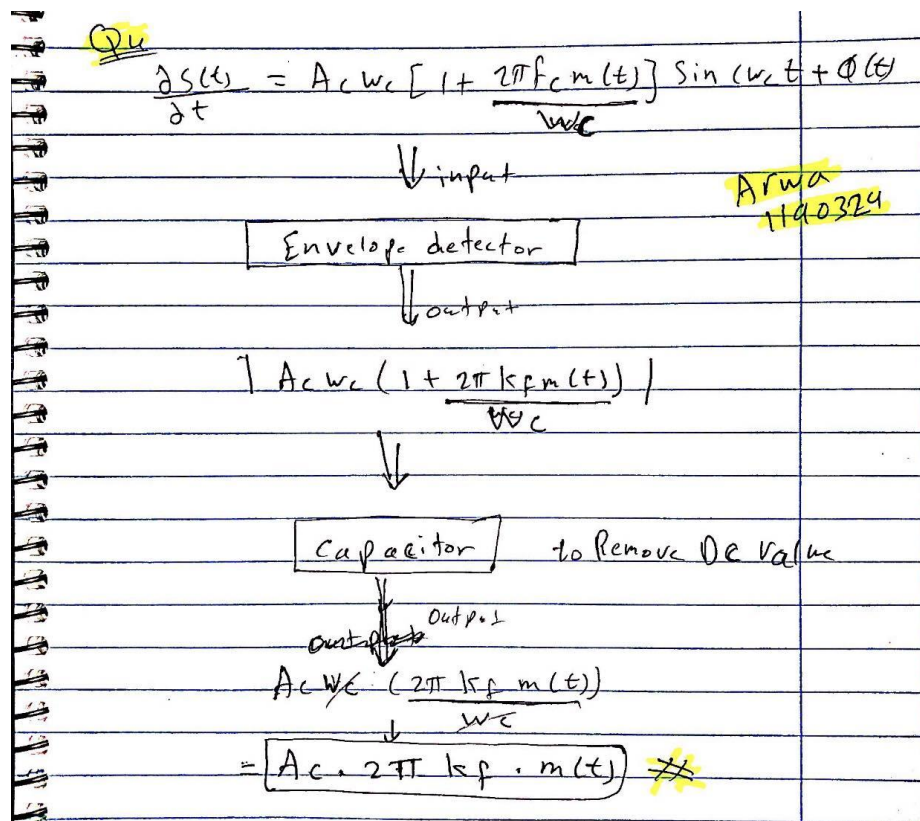 Qu
∂S(t)/∂t = Ac wc [1 + 2πfc m(t)/wc] Sin (wc t + φ(t)
input
Arwa
1190324
Envelope detector
output
| Ac wc (1 + 2π kf m(t))/wc |
capacitor to Remove Dc value
output
output
Ac wc (2π kf m(t))/wc
= Ac . 2π kf . m(t)